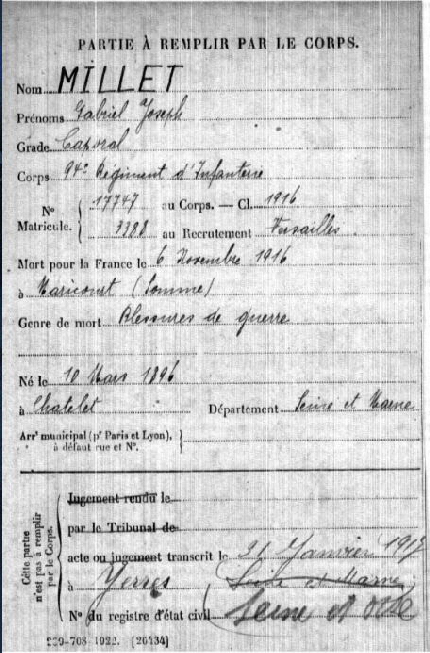 PARTIE À REMPLIR PAR LE CORPS.
Nom MILLET
Prénoms Gabriel Joseph
Grade Caporal
Corps 94e Régiment d'Infanterie
N° Matricule. 17747 au Corps. — Cl. 1916
3388 au Recrutement Versailles
Mort pour la France le 6 Novembre 1916
à Maricourt (Somme)
Genre de mort Blessures de guerre
Né le 10 Mars 1896
à Chatelet Département Seine et Marne
Arrt municipal (pr Paris et Lyon), à défaut rue et N°.
Cette partie n'est pas à remplir par le Corps.
Jugement rendu le
par le Tribunal de
acte ou jugement transcrit le 31 Janvier 1917
à Yerres Seine et Marne
N° du registre d'état civil Seine et Oise
-708-1922. [26434]